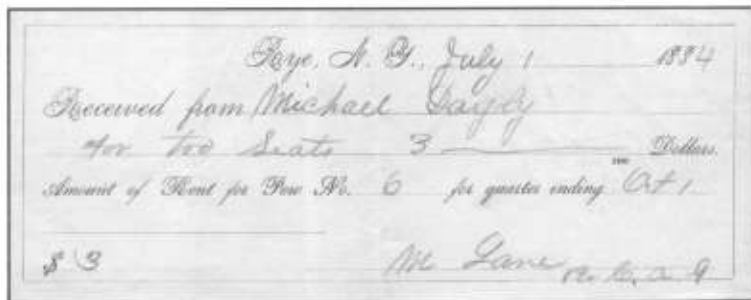 Rye, N. Y., July 1 1884
Received from Michael
for two Seats 3 Dollars.
Amount of Rent for Pew No. 6 for quarter ending Oct 1
$ 3 M Lane